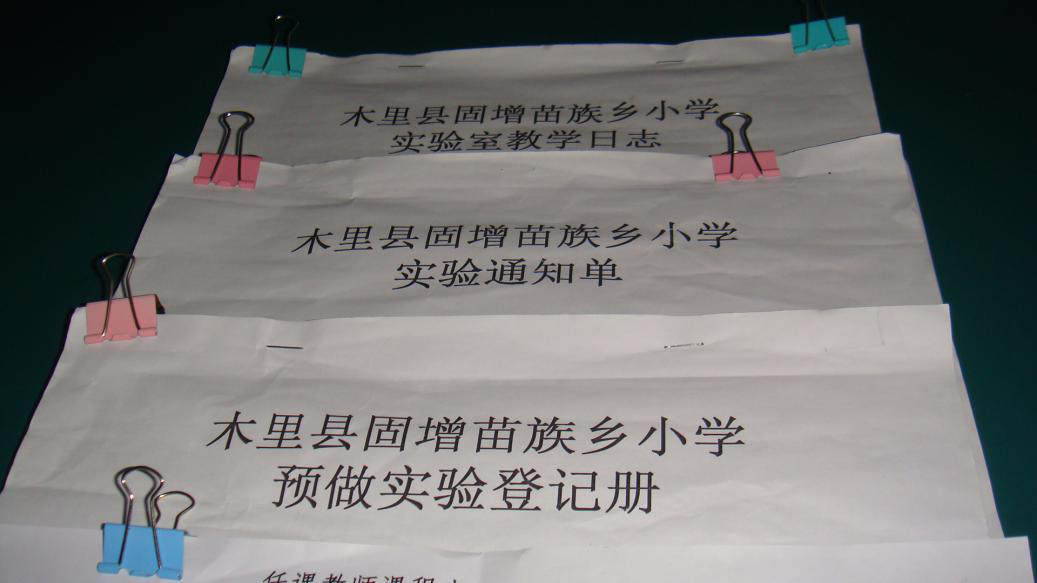 木里县固增苗族乡小学
实验室教学日志
木里县固增苗族乡小学
实验通知单
木里县固增苗族乡小学
预做实验登记册
任课教师课程